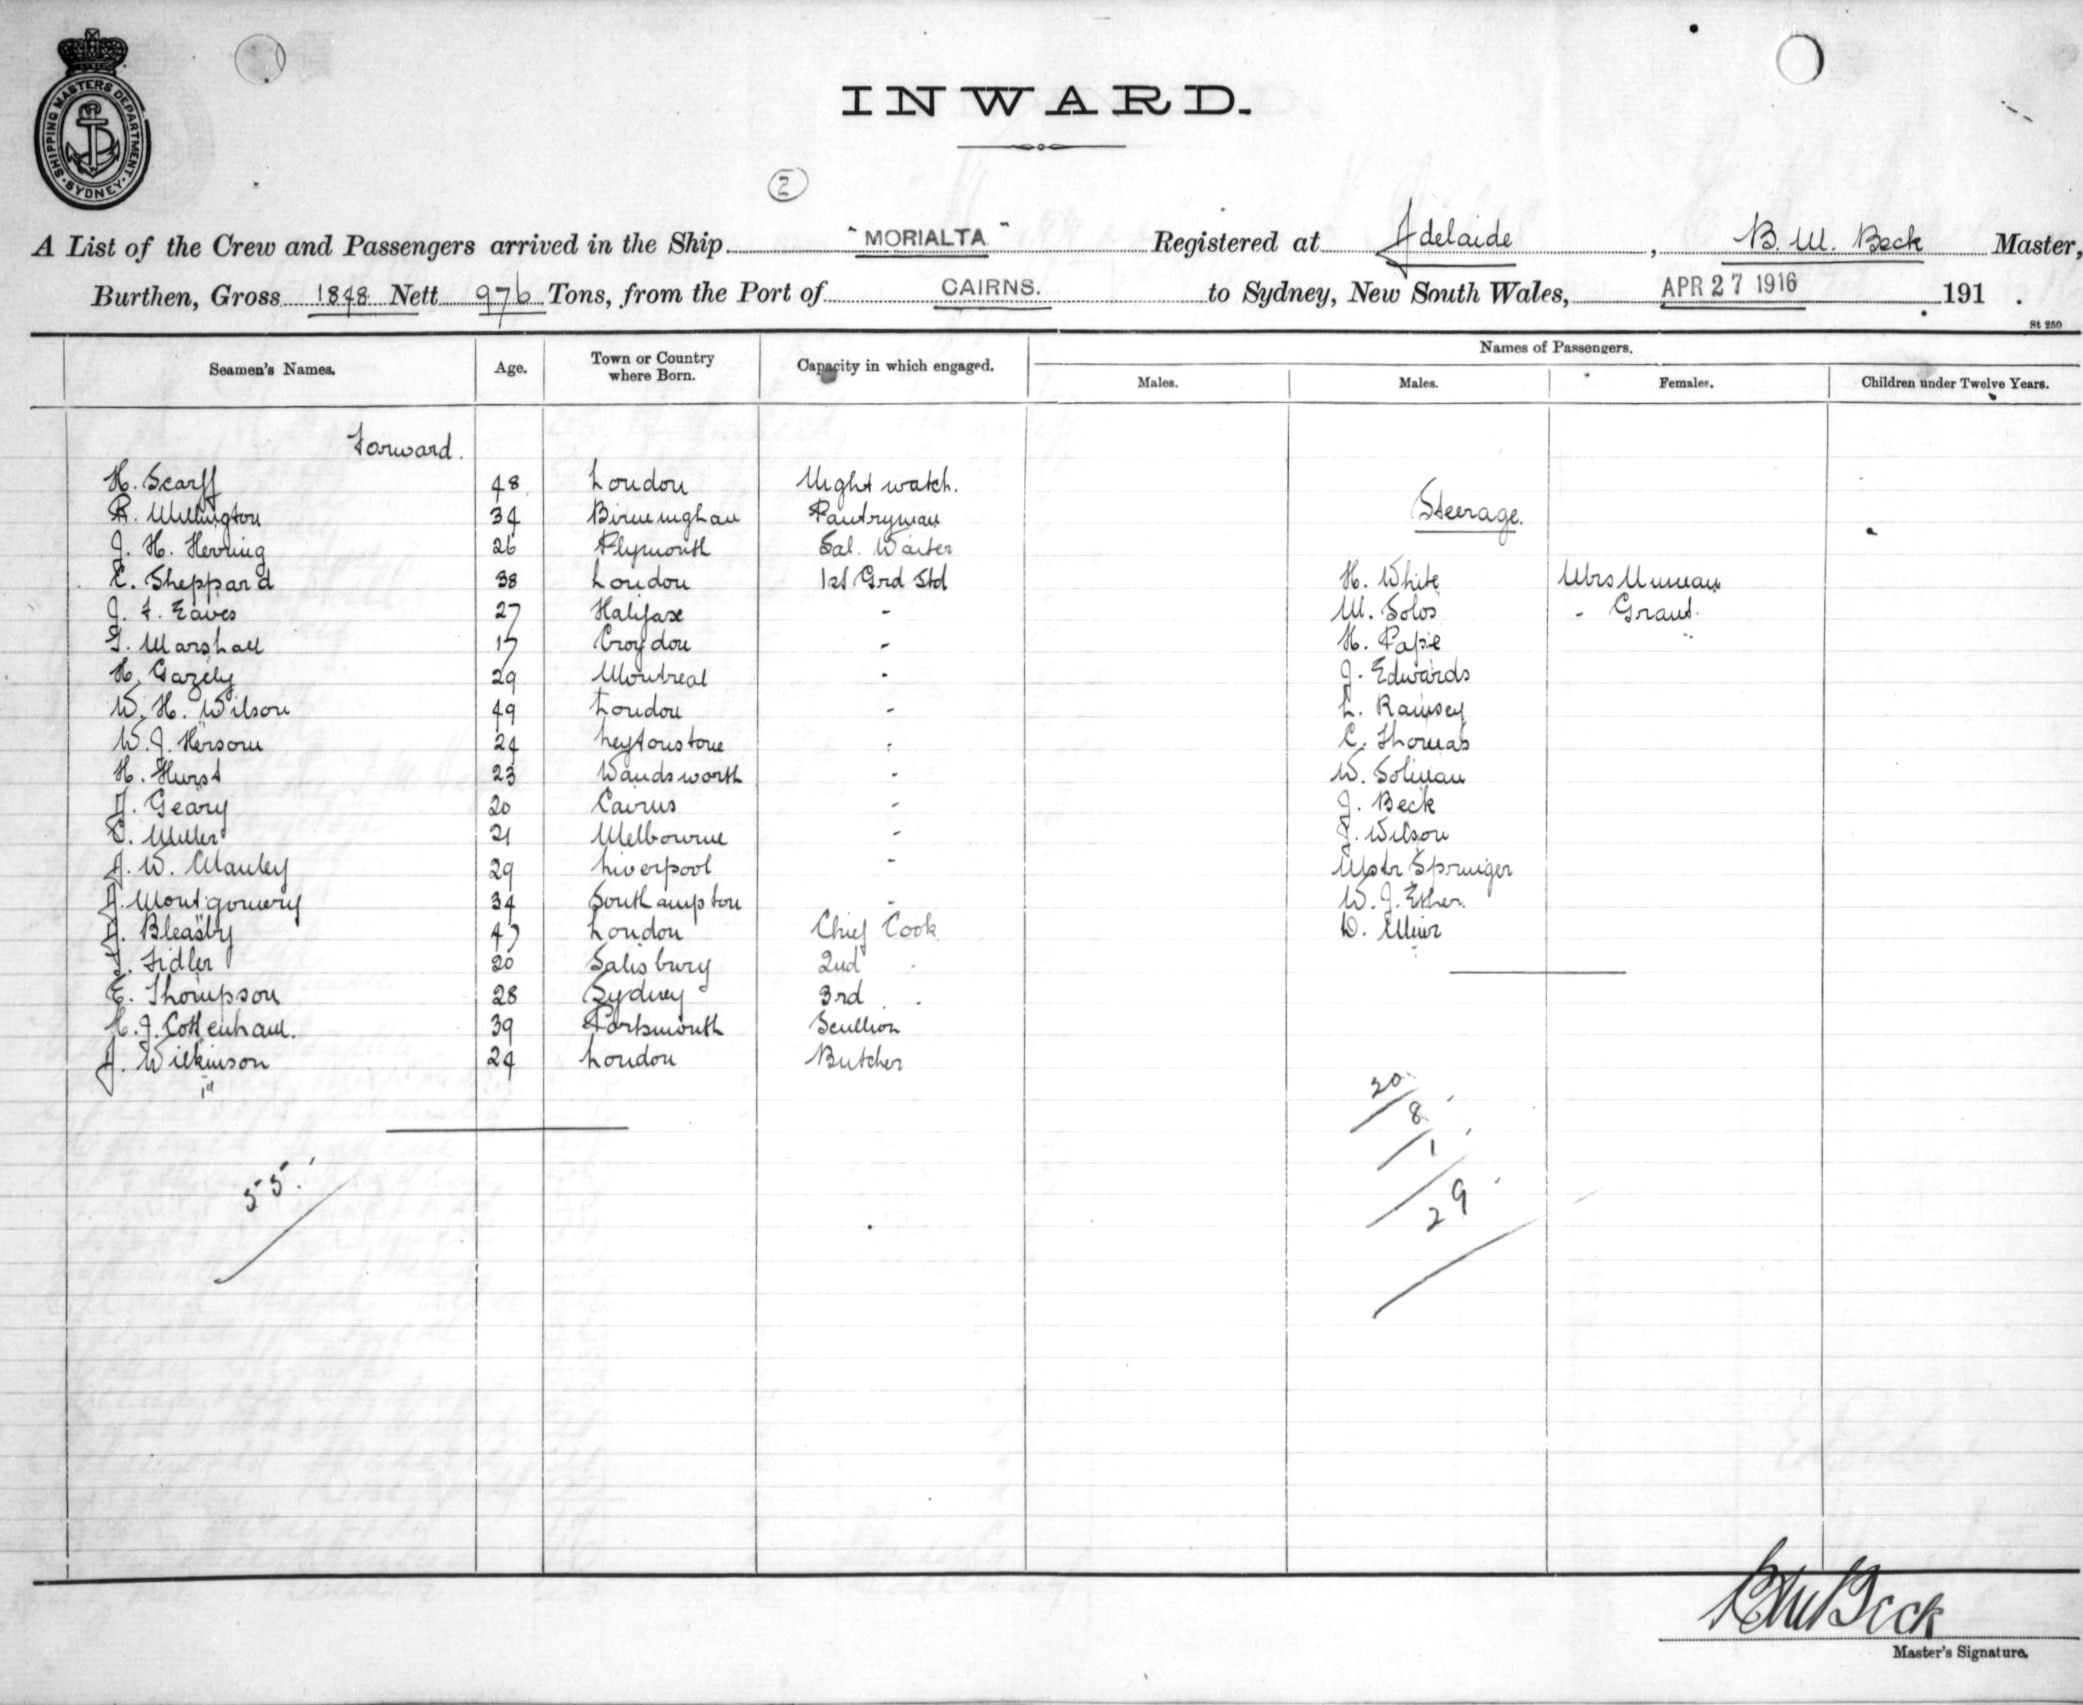 SHIPPING MASTERS DEPARTMENT
SYDNEY
INWARD.
2
A List of the Crew and Passengers arrived in the Ship "MORIALTA" Registered at Adelaide, B. M. Beck Master,
Burthen, Gross 1848 Nett 976 Tons, from the Port of CAIRNS. to Sydney, New South Wales, APR 27 1916 191 .
St 250
Seamen's Names. Age. Town or Country where Born. Capacity in which engaged. Names of Passengers.
Males. Males. Females. Children under Twelve Years.
Forward.
H. Scarff 48 London Night watch.
Steerage.
R. Willington 34 Birmingham Pantryman
J. H. Herring 26 Plymouth Sal. Waiter
C. Sheppard 38 London 1st Grd Std H. White Mrs
J. F. Eaves 27 Halifax - M. Solos - Grant.
G. Marshall 17 Croydon - H. Pape
H. Gazely 29 Montreal - J. Edwards
W. H. Wilson 49 London - L. Ramsey
W. J. Hersom 24 Leytonstone - C. Thomas
H. Hurst 23 Wandsworth - W. Soliman
J. Geary 20 Cairns - J. Beck
C. Miller 21 Melbourne - J. Wilson
A. W. Manley 29 Liverpool - Mstr Springer
A. Montgomery 34 Southampton - W. J. Ether.
A. Bleasby 47 London Chief Cook D. Muir
F. Fidler 20 Salisbury 2nd -
E. Thompson 28 Sydney 3rd -
H. J. Cottenham. 39 Portsmouth Scullion
A. Wilkinson 24 London Butcher
19
20
8
1
55
29
B M Beck
Master's Signature.